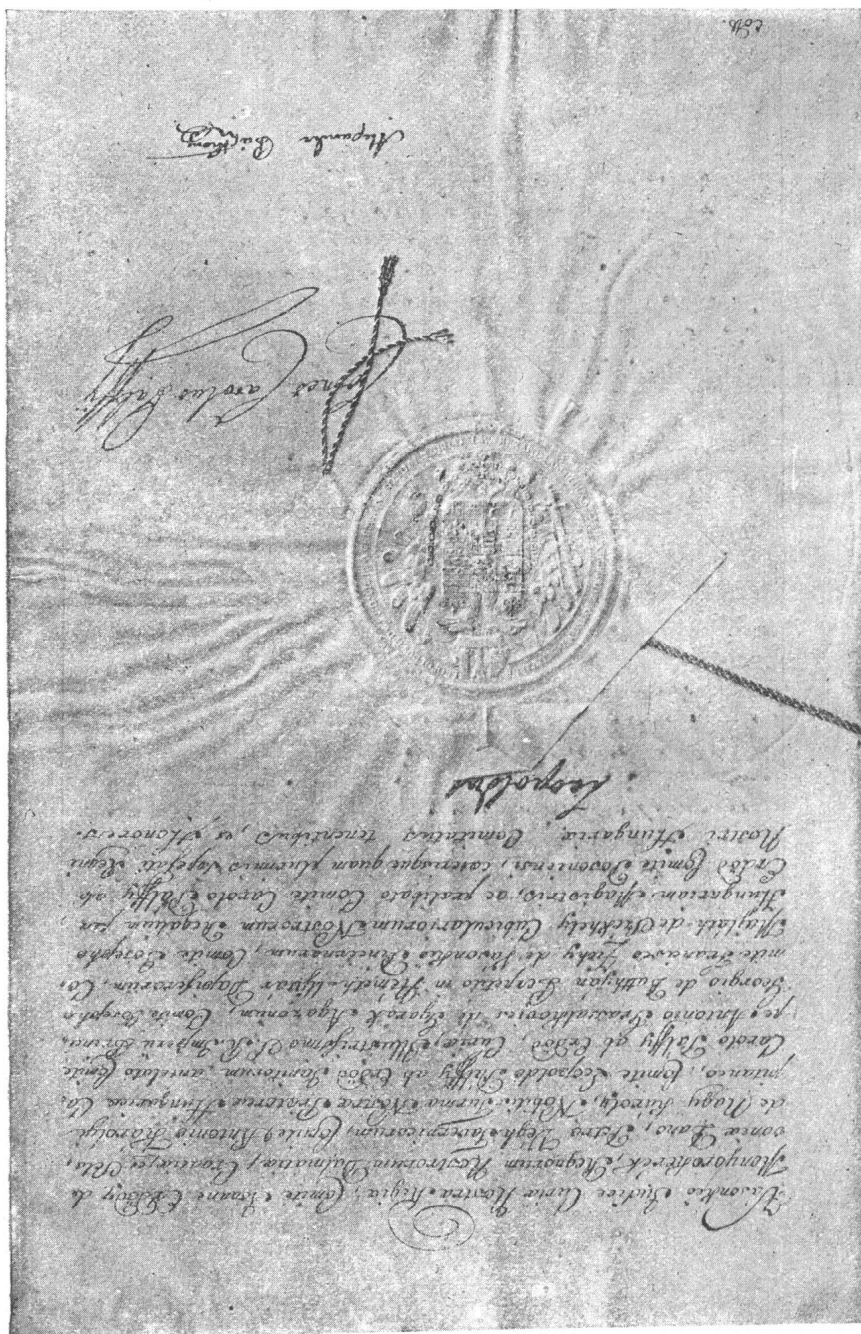 Vásonkeö Judice Curiæ Nostræ Regiæ, Comite Joanne Erdödy de
Monyorókerék, Regnorum Nostrorum Dalmatiæ, Croatiæ, et Scla,
voniæ Bano, Petro Végh Tavernicorum, Comite Antonio Károlyi
de Nagy Károly, Nobilis Turmæ Nostræ Prætoriæ Hungaricæ Ca,
pitaneo, Comite Leopoldo Pálffy ab Erdöd Janitorum, antelato Comite
Carolo Pálffy ab Erdöd, Curiæ, Illustrissimo S. R. Imperii Princi,
pe Antonio Grassalkovics de Gyarak Agazonum, Comite Josepho
Georgio de Batthyán Perpetuo in Németh-Ujvár Dapiferorum, Co,
mite Francisco Zichy de Vásonkeö Pincernarum, Comite Josepho
Majláth de Székhely Cubiculariorum Nostrorum Regalium per
Hungariam Magistris, ac Comite Carolo Pálffy ab
Erdöd Comite Posoniensi, cæterisque quam plurimis sæpefati Regni
Nostri Hungariæ Comitatus tenentibus, et Honores.
Leopoldus
Comes Carolus Pálffy
Alexander Pászthory